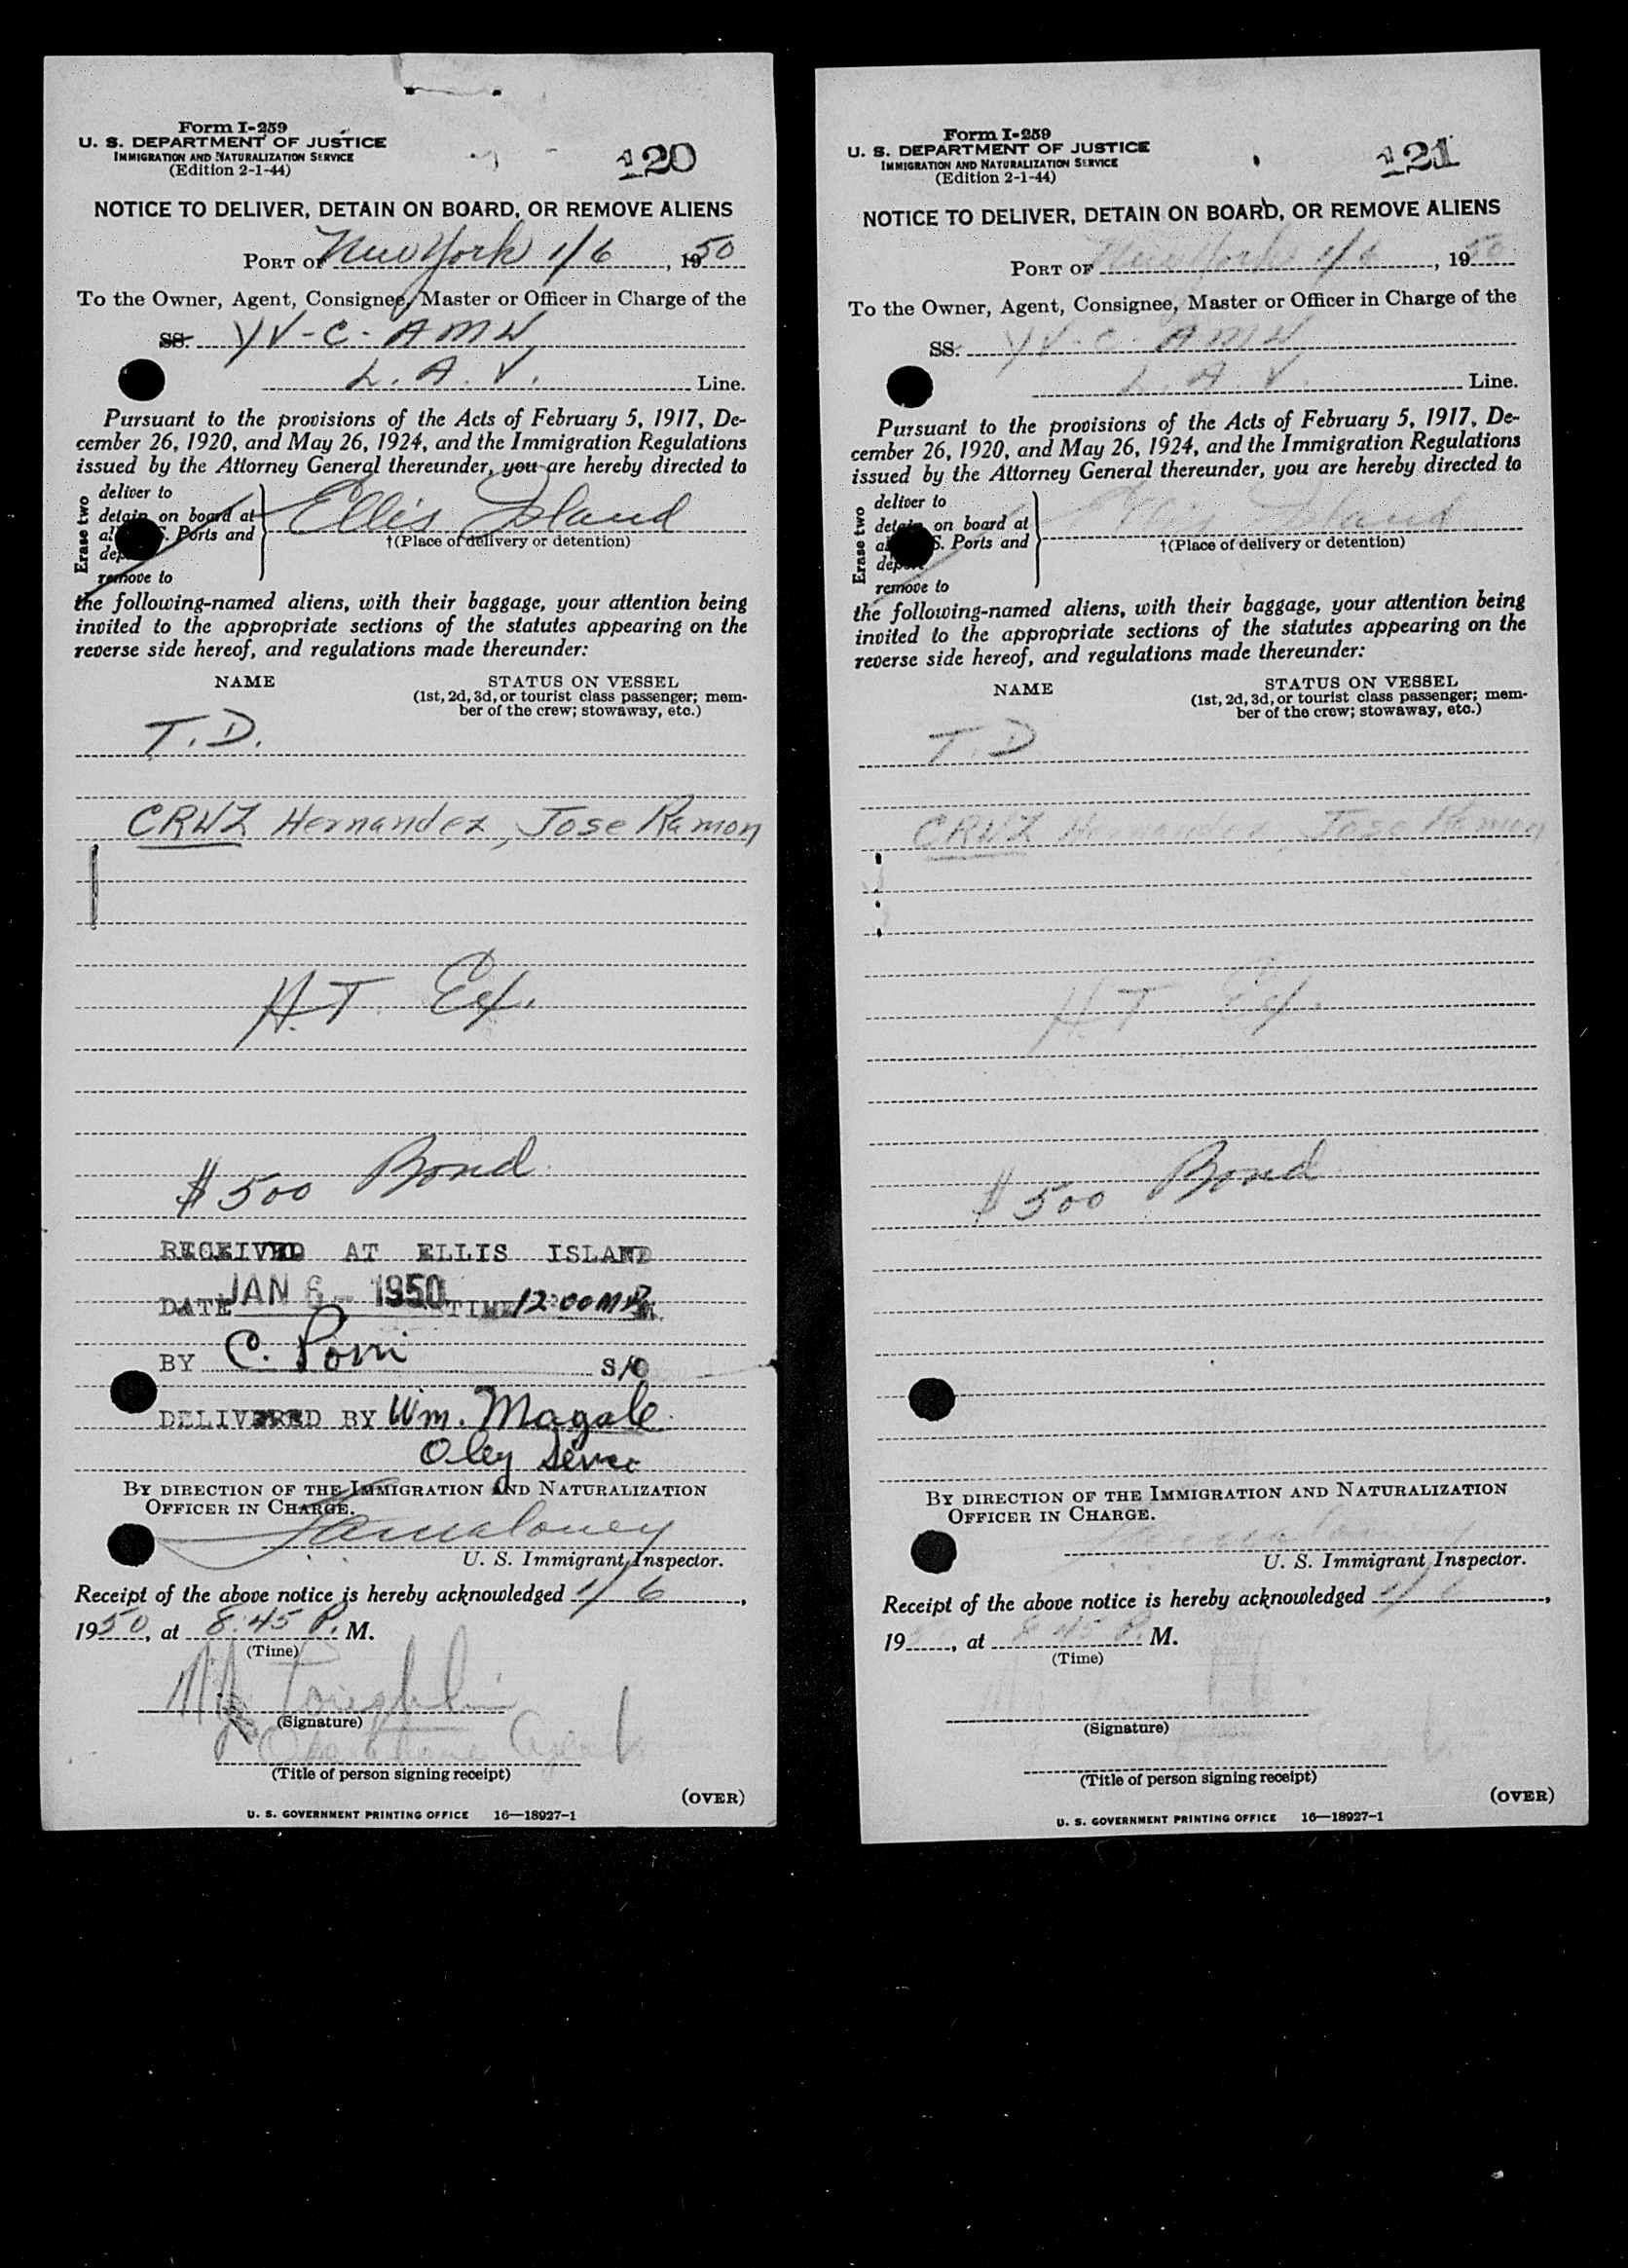 Form I-259
U. S. DEPARTMENT OF JUSTICE
IMMIGRATION AND NATURALIZATION SERVICE
(Edition 2-1-44)
120
NOTICE TO DELIVER, DETAIN ON BOARD, OR REMOVE ALIENS
PORT OF New York 1/6, 1950
To the Owner, Agent, Consignee, Master or Officer in Charge of the
SS. YV-C-AMU
L. A. V. Line.
Pursuant to the provisions of the Acts of February 5, 1917, De-
cember 26, 1920, and May 26, 1924, and the Immigration Regulations
issued by the Attorney General thereunder, you are hereby directed to
Erase two
deliver to
detain on board at
S. Ports and
remove to
Ellis Island
†(Place of delivery or detention)
the following-named aliens, with their baggage, your attention being
invited to the appropriate sections of the statutes appearing on the
reverse side hereof, and regulations made thereunder:
NAME
STATUS ON VESSEL
(1st, 2d, 3d, or tourist class passenger; mem-
ber of the crew; stowaway, etc.)
T.D.
CRUZ Hernandez, Jose Ramon
H.T. Ex.
$500 Bond
RECEIVED AT ELLIS ISLAND
DATE JAN 6 - 1950 TIME 12:00 M
BY C. S/O
DELIVERED BY Wm. Magale
Oley
BY DIRECTION OF THE IMMIGRATION AND NATURALIZATION
OFFICER IN CHARGE.
Maloney
U. S. Immigrant Inspector.
Receipt of the above notice is hereby acknowledged 1/6,
1950, at 8:45 P. M.
(Time)
(Signature)
Agent
(Title of person signing receipt)
(OVER)
U. S. GOVERNMENT PRINTING OFFICE 16—18927-1
Form I-259
U. S. DEPARTMENT OF JUSTICE
IMMIGRATION AND NATURALIZATION SERVICE
(Edition 2-1-44)
121
NOTICE TO DELIVER, DETAIN ON BOARD, OR REMOVE ALIENS
PORT OF New York 1/6, 1950
To the Owner, Agent, Consignee, Master or Officer in Charge of the
SS. YV-C-AMU
L. A. V. Line.
Pursuant to the provisions of the Acts of February 5, 1917, De-
cember 26, 1920, and May 26, 1924, and the Immigration Regulations
issued by the Attorney General thereunder, you are hereby directed to
Erase two
deliver to
detain on board at
S. Ports and
remove to
Ellis Island
†(Place of delivery or detention)
the following-named aliens, with their baggage, your attention being
invited to the appropriate sections of the statutes appearing on the
reverse side hereof, and regulations made thereunder:
NAME
STATUS ON VESSEL
(1st, 2d, 3d, or tourist class passenger; mem-
ber of the crew; stowaway, etc.)
T.D
CRUZ Hernandez, Jose Ramon
H.T Ex.
$500 Bond
BY DIRECTION OF THE IMMIGRATION AND NATURALIZATION
OFFICER IN CHARGE.
Maloney
U. S. Immigrant Inspector.
Receipt of the above notice is hereby acknowledged 1/6,
19, at 8:45 P. M.
(Time)
(Signature)
(Title of person signing receipt)
(OVER)
U. S. GOVERNMENT PRINTING OFFICE 16—18927-1